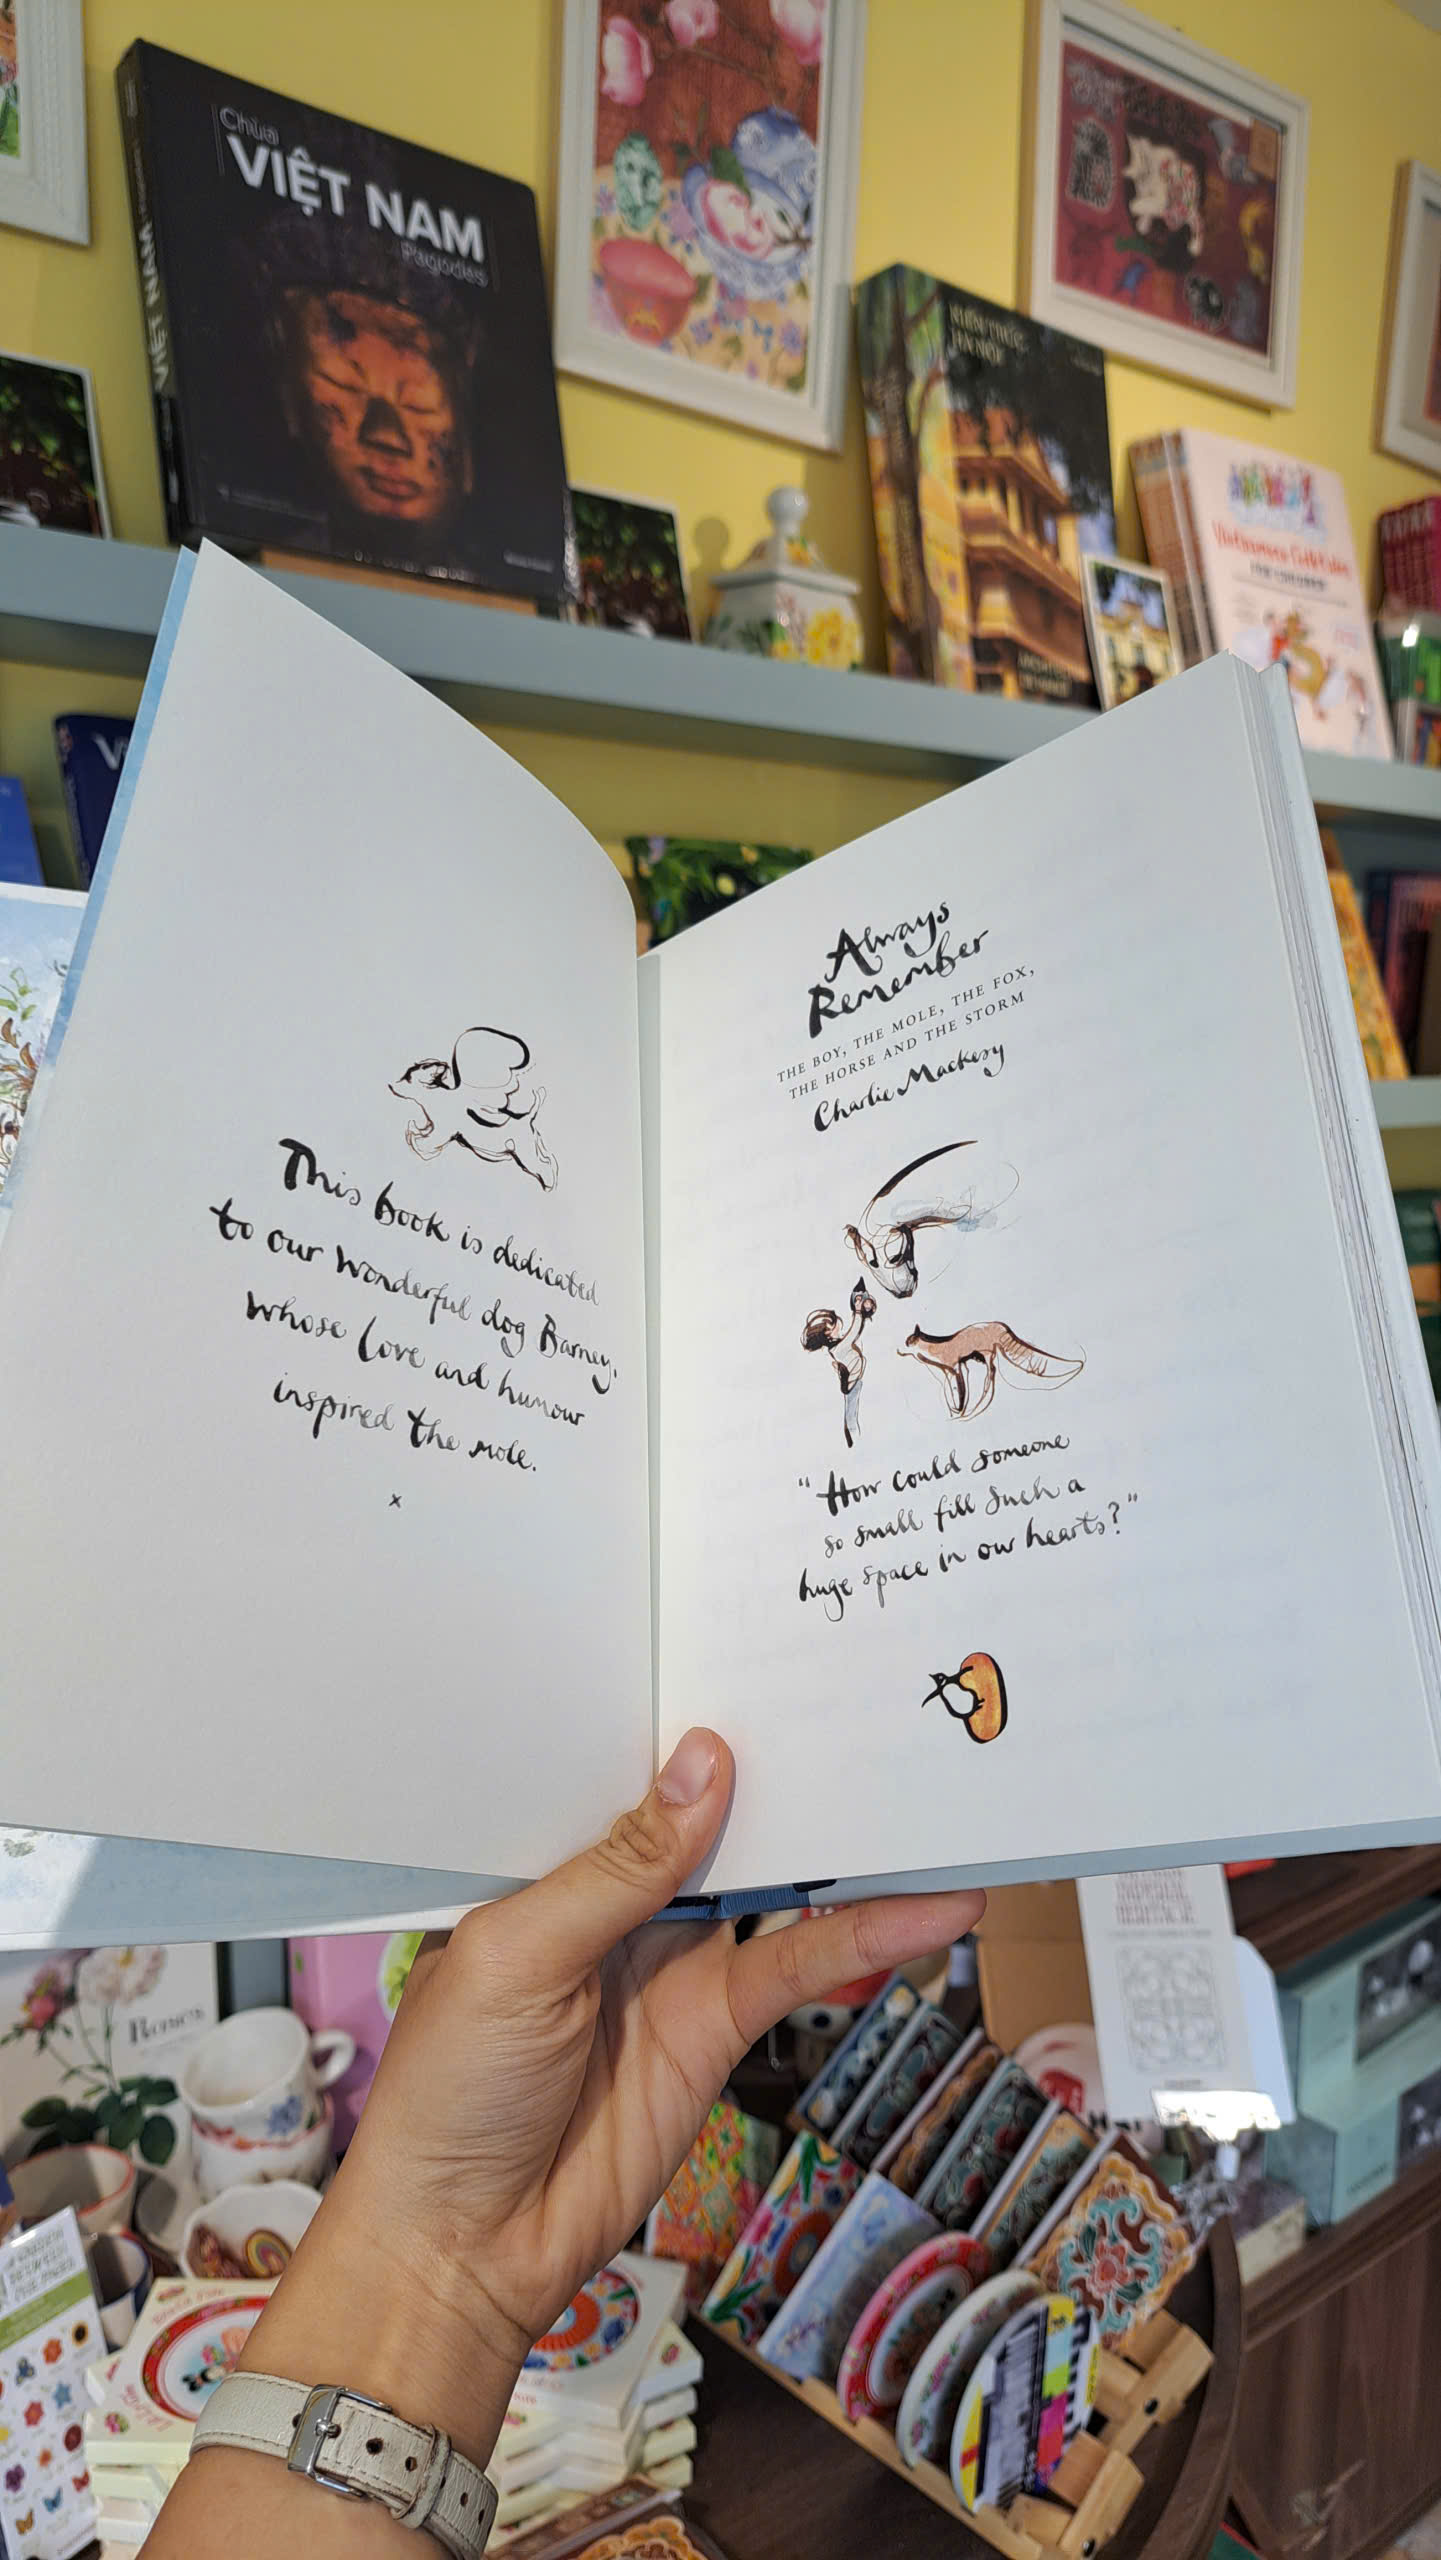 Chùa
VIỆT NAM
Pagodas
VIỆT NAM
KIẾN TRÚC
HÀ NỘI
This book is dedicated
to our wonderful dog Barney,
whose love and humour
inspired the mole.
x
Always
Remember
THE BOY, THE MOLE, THE FOX,
THE HORSE AND THE STORM
Charlie Mackesy
“How could someone
so small fill such a
huge space in our hearts?”
Roses